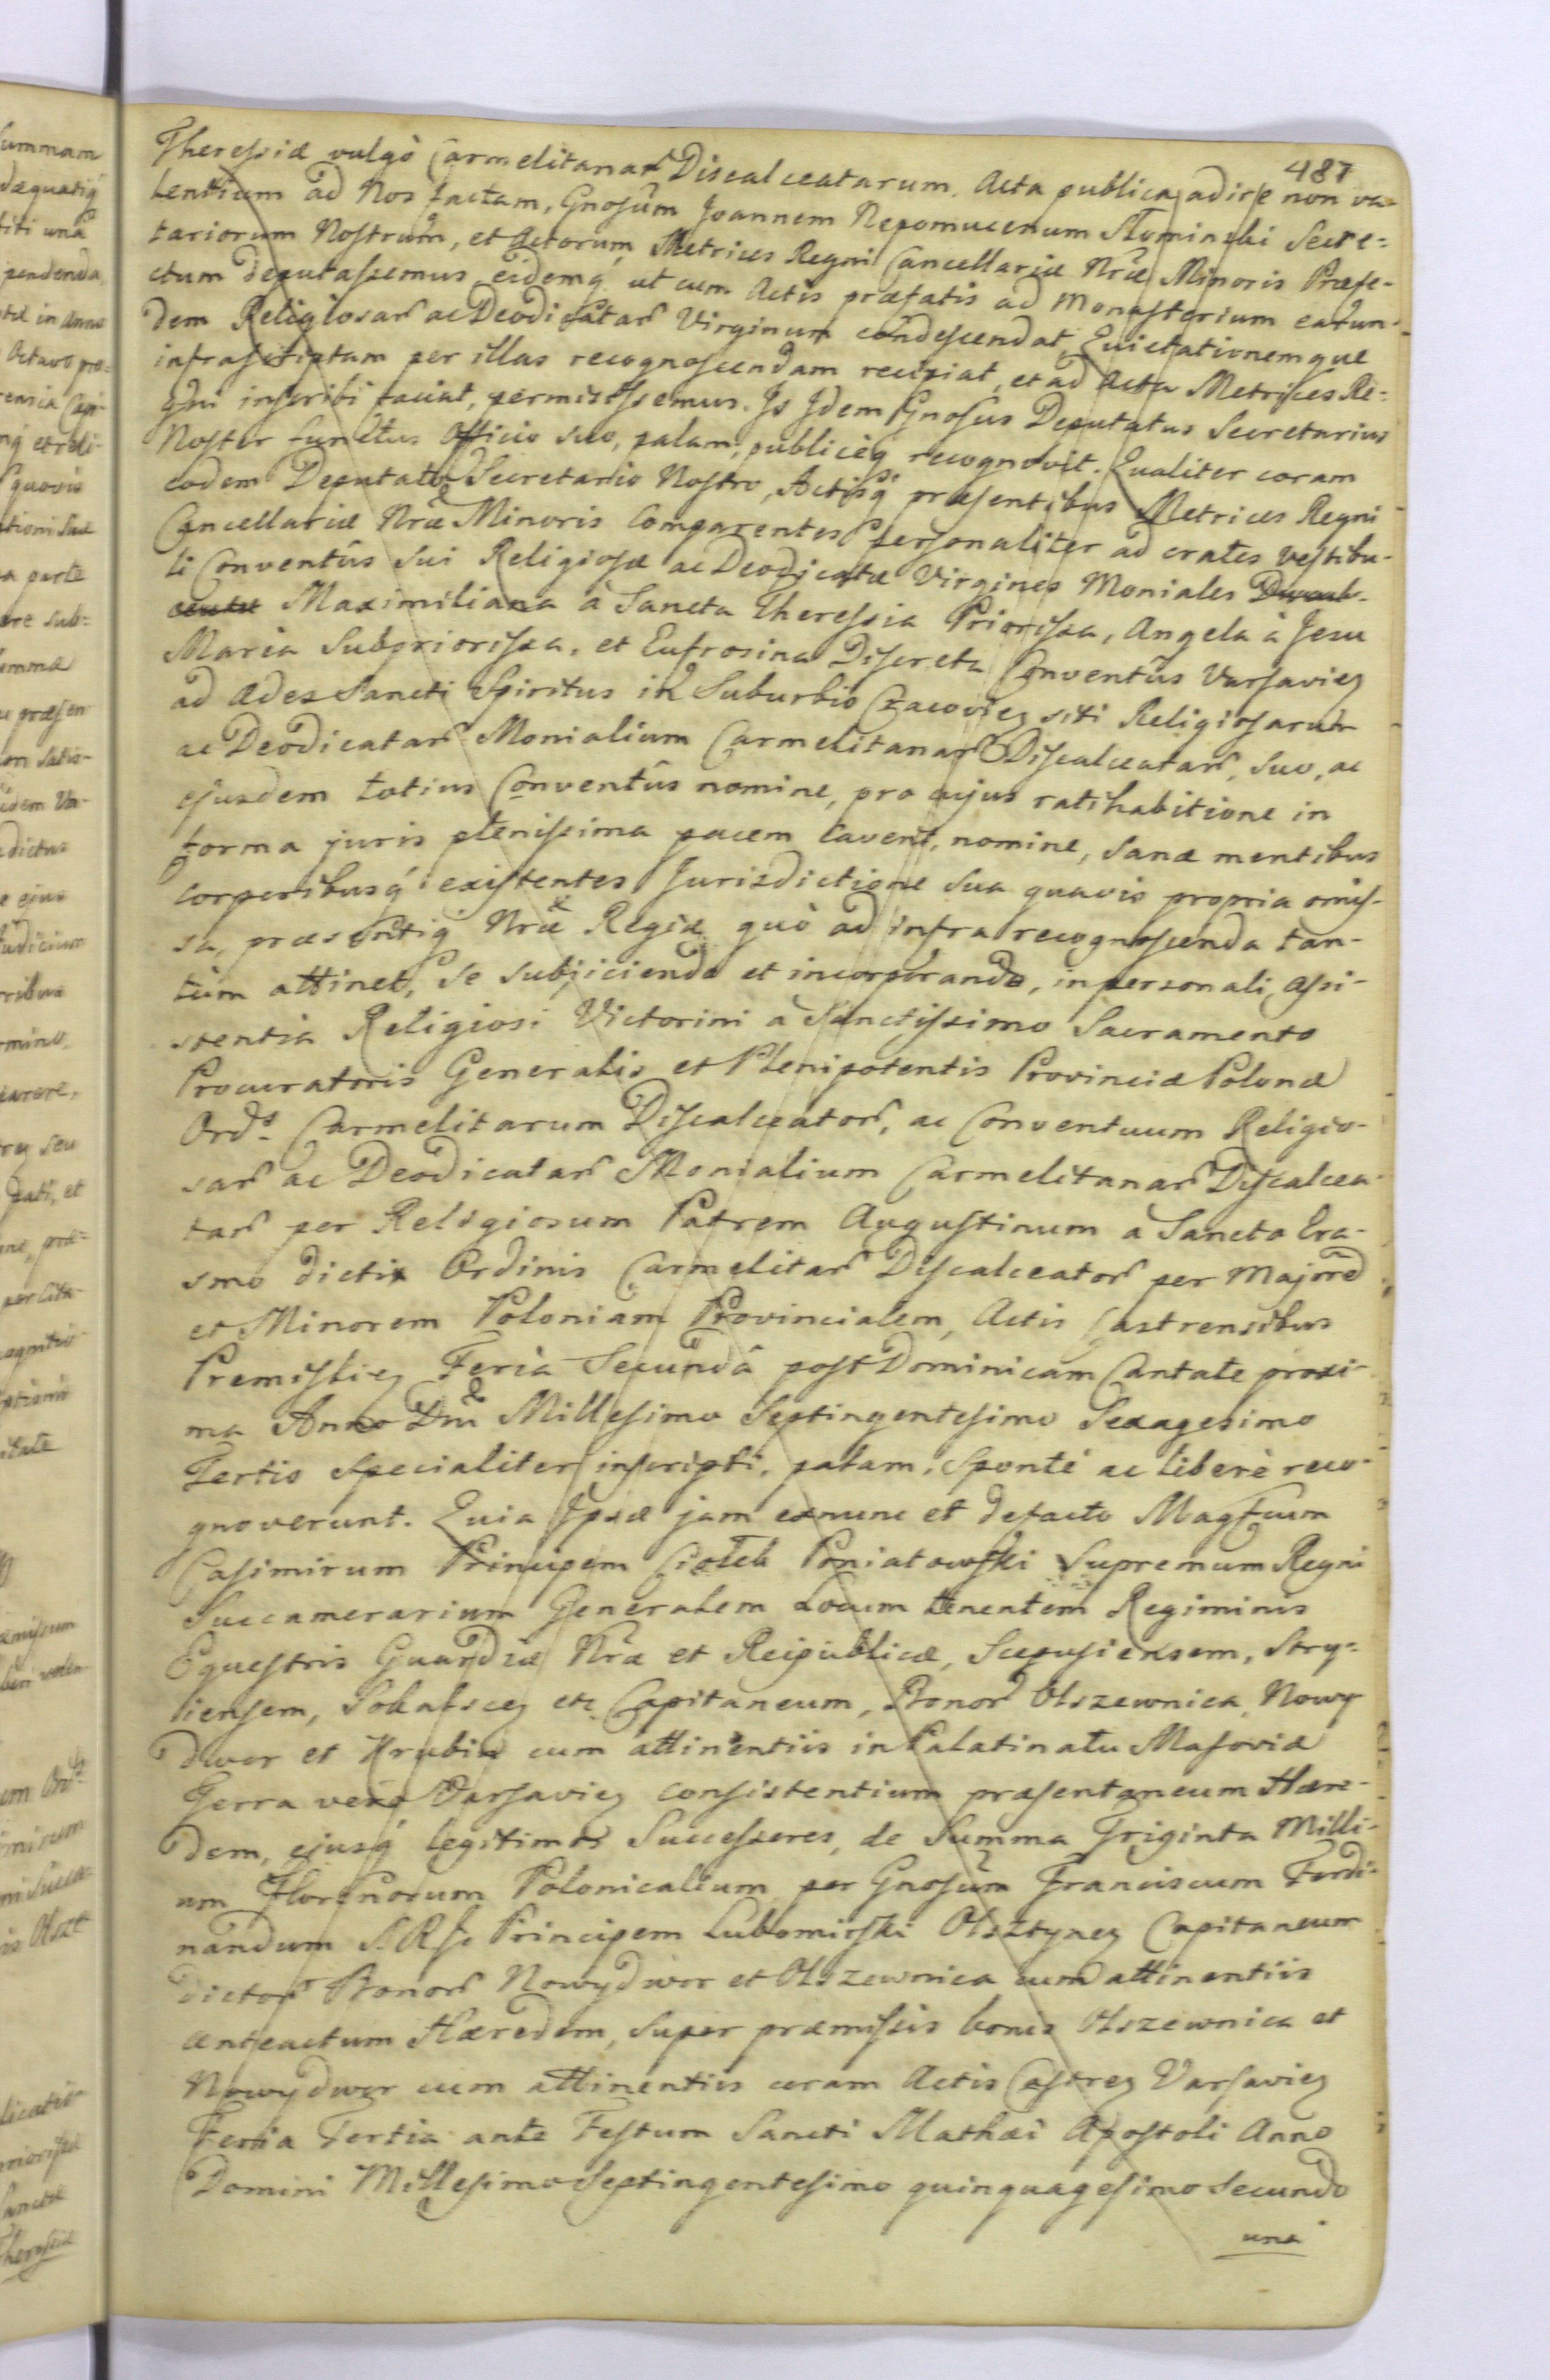 487
Theressiæ vulgò Carmelitanar Discalceatarum. Acta publica adire non va-
lentium ad Nos factam, Gnosum Joannem Nepomucenum Słominski Secre=
tariorum Nostrum, et Actorum Metrices Regni Cancellariæ Nræ Minoris Præfe-
ctum deputassemus eidemq ut cum Actis præfatis ad Monasterium earun-
dem Religiosar ac Deodicatar Virginum condescendat Quietationemque
infrascriptam per illas recognoscendam recipiat, et ad Acta Metrices Re=
gni inscribi faciat, permisissemus. Is Idem Gnosus Deputatus Secretarius
Noster functus Officio suo, palam, publiceq recognovit. Qualiter coram
eodem Deputato Secretario Nostro, Actisq præsentibus Metrices Regni
Cancellariæ Nræ Minoris Comparentes personaliter ad crates vestibu-
li Conventûs sui Religiosæ ac Deodicatæ Virgines Moniales
Maximiliana à Sancta Theressia Priorissa, Angela à Jesu
Maria Subpriorissa, et Eufrosina Discreta Conventûs Varsavien
ad Ædes Sancti Spiritus in Suburbio Cracovien siti Religiosarum
ac Deodicatar Monialium Carmelitanar Discalceatar, suo, ac
ejusdem totius Conventûs nomine, pro cujus ratihabitione in
forma juris plenissima pacem cavent, nomine, sanæ mentibus
corporibusq existentes Jurisdictione sua quavis propria omis-
sa, præsentiq Nræ Regiæ quò ad infra recognoscenda tan-
tùm attinet, se subjiciendo et incorporando, in personali assi-
stentia Religiosi Victorini a Sanctissimo Sacramento
Procuratoris Generalis et Plenipotentis Provinciæ Polonæ
Ords Carmelitarum Discalceator, ac Conventuum Religio-
sar ac Deodicatar Monialium Carmelitanar Discalcea-
tar per Religiosum Patrem Augustinum a Sancto Era-
smo dicti Ordinis Carmelitar Discalceator per Majorē
et Minorem Poloniam Provincialem, Actis Castrensibus
Premislien Feria Secundâ post Dominicam Cantate proxi-
ma Anno Dni Millesimo Septingentesimo Sexagesimo
Tertio specialiter inscripti, palam, sponte ac liberè reco-
gnoverunt. Quia Ipsæ jam exnunc et defacto Magfcum
Casimirum Principem Ciołek Poniatowski Supremum Regni
Succamerarium Generalem Locum tenentem Regiminis
Equestris Guardiæ Nræ et Reipublicæ, Scepusiensem, Stry=
iensem, Sokalscen etc Capitaneum, Bonor Olszewnica, Nowy
dwor et Hrubie cum attinentiis in Palatinatu Masoviæ
Terra verò Varsavien consistentium præsentaneum Hære-
dem, ejusq legitimos Successores, de Summa Triginta Milli-
um Florenorum Polonicalium per Gnosum Franciscum Ferdi-
nandum S.R.I. Principem Lubomirski Olsztynen Capitaneum
dictor Bonor Nowydwor et Olszewnica cum attinentiis
anteactum Hæredem, super præmissis bonis Olszewnica et
Nowydwor cum attinentiis coram Actis Castren Varsavien
Feria Tertia ante Festum Sancti Mathæi Apostoli Anno
Domini Millesimo Septingentesimo quinquagesimo secundo
una